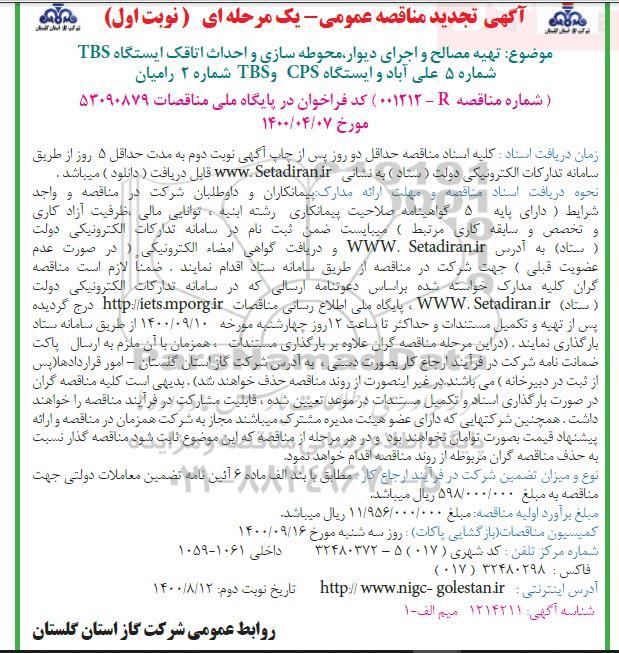 آگهی تجدید مناقصه عمومی- یک مرحله ای ( نوبت اول)
شرکت گاز استان گلستان
موضوع: تهیه مصالح و اجرای دیوار،محوطه سازی و احداث اتاقک ایستگاه TBS
شماره ۵ علی آباد و ایستگاه CPS وTBS شماره ۲ رامیان
( شماره مناقصه R – ۰۰۱۲۱۲) کد فراخوان در پایگاه ملی مناقصات ۵۳۰۹۰۸۷۹
مورخ ۱۴۰۰/۰۴/۰۷
زمان دریافت اسناد : کلیه اسناد مناقصه حداقل دو روز پس از چاپ آگهی نوبت دوم به مدت حداقل ۵ روز از طریق
سامانه تدارکات الکترونیکی دولت ( ستاد) به نشانی www. Setadiran.ir قابل دریافت ( دانلود ) میباشد .
نحوه دریافت اسناد مناقصه و مهلت ارائه مدارک:پیمانکاران و داوطلبان شرکت در مناقصه و واجد
شرایط ( دارای پایه ۵ گواهینامه صلاحیت پیمانکاری رشته ابنیه ، توانایی مالی ،ظرفیت آزاد کاری
و تخصص و سابقه کاری مرتبط ) میبایست ضمن ثبت نام در سامانه تدارکات الکترونیکی دولت
( ستاد) به آدرس WWW. Setadiran.ir و دریافت گواهی امضاء الکترونیکی ( در صورت عدم
عضویت قبلی ) جهت شرکت در مناقصه از طریق سامانه ستاد اقدام نمایند . ضمناً لازم است مناقصه
گران کلیه مدارک خواسته شده براساس دعوتنامه ارسالی که در سامانه تدارکات الکترونیکی دولت
( ستاد) WWW. Setadiran.ir ، پایگاه ملی اطلاع رسانی مناقصات http://iets.mporg.ir درج گردیده
پس از تهیه و تکمیل مستندات و حداکثر تا ساعت ۱۲روز چهارشنبه مورخه ۱۴۰۰/۰۹/۱۰ از طریق سامانه ستاد
بارگذاری نمایند . (دراین مرحله مناقصه گران علاوه بر بارگذاری مستندات ، همزمان با آن ملزم به ارسال پاکت
ضمانت نامه شرکت در فرآیند ارجاع کار بصورت دستی ، به آدرس شرکت گاز استان گلستان – امور قراردادها(پس
از ثبت در دبیرخانه ) می باشند.در غیر اینصورت از روند مناقصه حذف خواهند شد) . بدیهی است کلیه مناقصه گران
در صورت بارگذاری اسناد و تکمیل مستندات در موعد تعیین شده ، قابلیت مشارکت در فرآیند مناقصه را خواهند
داشت . همچنین شرکتهایی که دارای عضو هیئت مدیره مشترک میباشند مجاز به شرکت همزمان در مناقصه و ارائه
پیشنهاد قیمت بصورت توامان نخواهند بود و در هر مرحله از مناقصه که این موضوع ثابت شود مناقصه گذار نسبت
به حذف مناقصه گران مربوطه از روند مناقصه اقدام خواهد نمود.
نوع و میزان تضمین شرکت در فرآیند ارجاع کار : مطابق با بند الف ماده ۶ آئین نامه تضمین معاملات دولتی جهت
مناقصه به مبلغ ۵۹۸/۰۰۰/۰۰۰ ریال میباشد.
مبلغ برآورد اولیه مناقصه: مبلغ ۱۱/۹۵۶/۰۰۰/۰۰۰ ریال میباشد.
کمیسیون مناقصات(بازگشایی پاکات) : روز سه شنبه مورخ ۱۴۰۰/۰۹/۱۶
شماره مرکز تلفن : کد شهری ( ۰۱۷ ) ۵ – ۳۲۴۸۰۳۷۲ داخلی ۱۰۶۱-۱۰۵۹
فاکس : ۳۲۴۸۰۲۹۸ ( ۰۱۷ )
آدرس اینترنتی : http:// www.nigc- golestan.ir تاریخ نوبت دوم: ۱۴۰۰/۸/۱۲
شناسه آگهی: ۱۲۱۴۲۱۱ میم الف-۱
روابط عمومی شرکت گاز استان گلستان